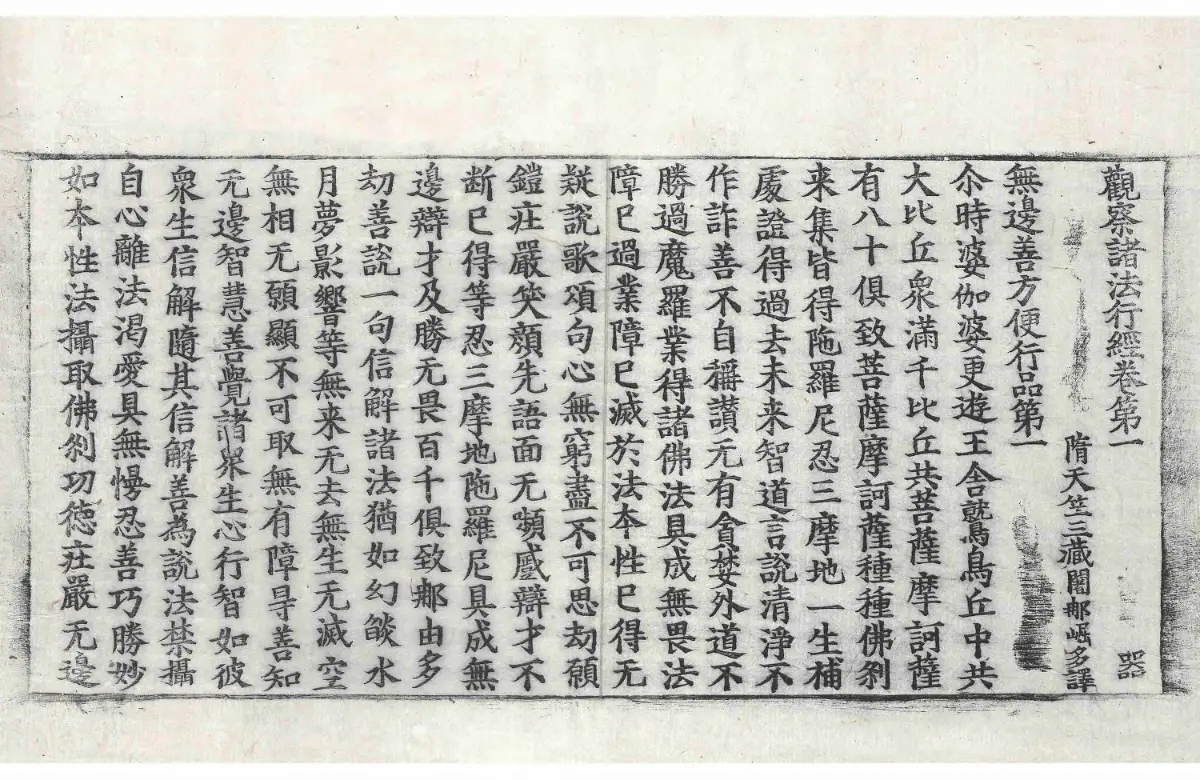 觀察諸法行經卷第一 器
隋天竺三藏闍那崛多譯
無邊善方便行品第一
尒時婆伽婆更遊王舍鷲鳥丘中共
大比丘衆滿千比丘共菩薩摩訶薩
有八十俱致菩薩摩訶薩種種佛刹
來集皆得陁羅尼忍三摩地一生補
處證得過去未来智道言說清淨不
作詐善不自稱讃无有貪婪外道不
勝過魔羅業得諸佛法具成無畏法
障已過業障已滅於法本性已得无
疑說歌頌句心無窮盡不可思劫願
鎧庄嚴笑顏先語面无嚬慼辯才不
断已得等忍三摩地陁羅尼具成無
邊辯才及勝无畏百千俱致那由多
劫善說一句信解諸法猶如幻燄水
月夢影響等無来无去無生无滅空
無相无願顯不可取無有障㝵善知
无邊智慧善覺諸衆生心行智如彼
衆生信解隨其信解善為說法禁攝
自心離法渴愛具無慢忍善巧勝妙
如本性法攝取佛刹功徳庄嚴无邊